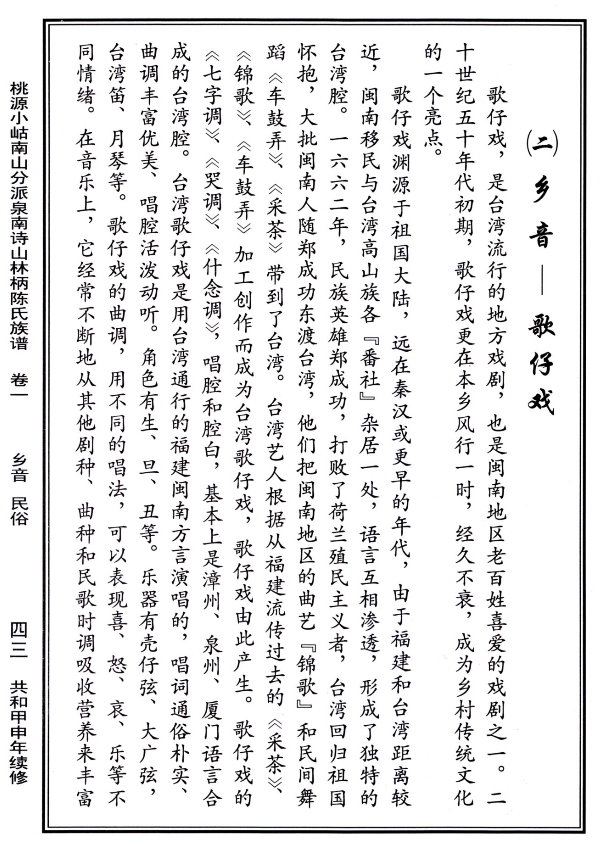 (二)乡音—歌仔戏
歌仔戏，是台湾流行的地方戏剧，也是闽南地区老百姓喜爱的戏剧之一。二
十世纪五十年代初期，歌仔戏更在本乡风行一时，经久不衰，成为乡村传统文化
的一个亮点。
歌仔戏渊源于祖国大陆，远在秦汉或更早的年代，由于福建和台湾距离较
近，闽南移民与台湾高山族各『番社』杂居一处，语言互相渗透，形成了独特的
台湾腔。一六六二年，民族英雄郑成功，打败了荷兰殖民主义者，台湾回归祖国
怀抱，大批闽南人随郑成功东渡台湾，他们把闽南地区的曲艺『锦歌』和民间舞
蹈《车鼓弄》、《采茶》带到了台湾。台湾艺人根据从福建流传过去的《采茶》、
《锦歌》、《车鼓弄》加工创作而成为台湾歌仔戏，歌仔戏由此产生。歌仔戏的
《七字调》、《哭调》、《什念调》，唱腔和腔白，基本上是漳州、泉州、厦门语言合
成的台湾腔。台湾歌仔戏是用台湾通行的福建闽南方言演唱的，唱词通俗朴实、
曲调丰富优美、唱腔活泼动听。角色有生、旦、丑等。乐器有壳仔弦、大广弦，
台湾笛、月琴等。歌仔戏的曲调，用不同的唱法，可以表现喜、怒、哀、乐等不
同情绪。在音乐上，它经常不断地从其他剧种、曲种和民歌时调吸收营养来丰富
桃源小岵南山分派泉南诗山林柄陈氏族谱 卷一 乡音 民俗 四三 共和甲申年续修